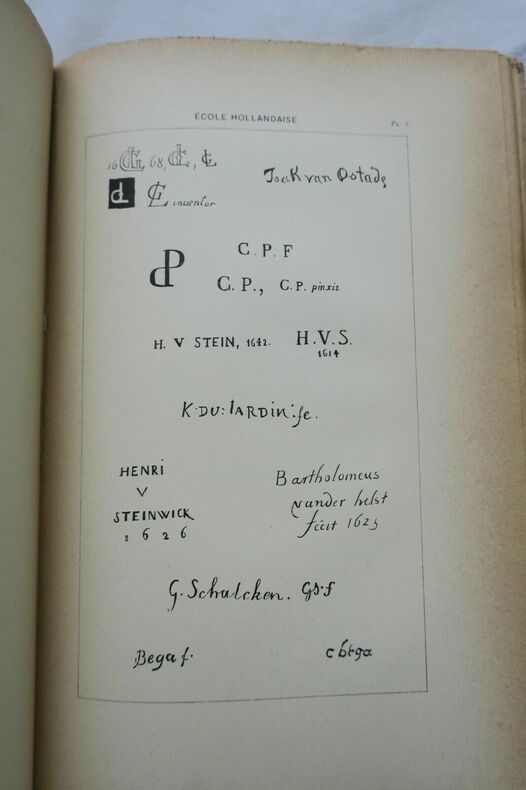 ÉCOLE HOLLANDAISE
PL. 1.
16 GL 68, GL, GL
Isack van Ostade
GL inventor
C. P. F
CP
C. P., C. P. pinxit
H. V STEIN, 1642. H. V. S.
1614
K·DU:IARDIN:fe.
HENRI
V
STEINWICK
1 6 2 6
Bartholomeus
vander helst
fecit 1623
G. Schalcken. GS·f
Bega f. c bega